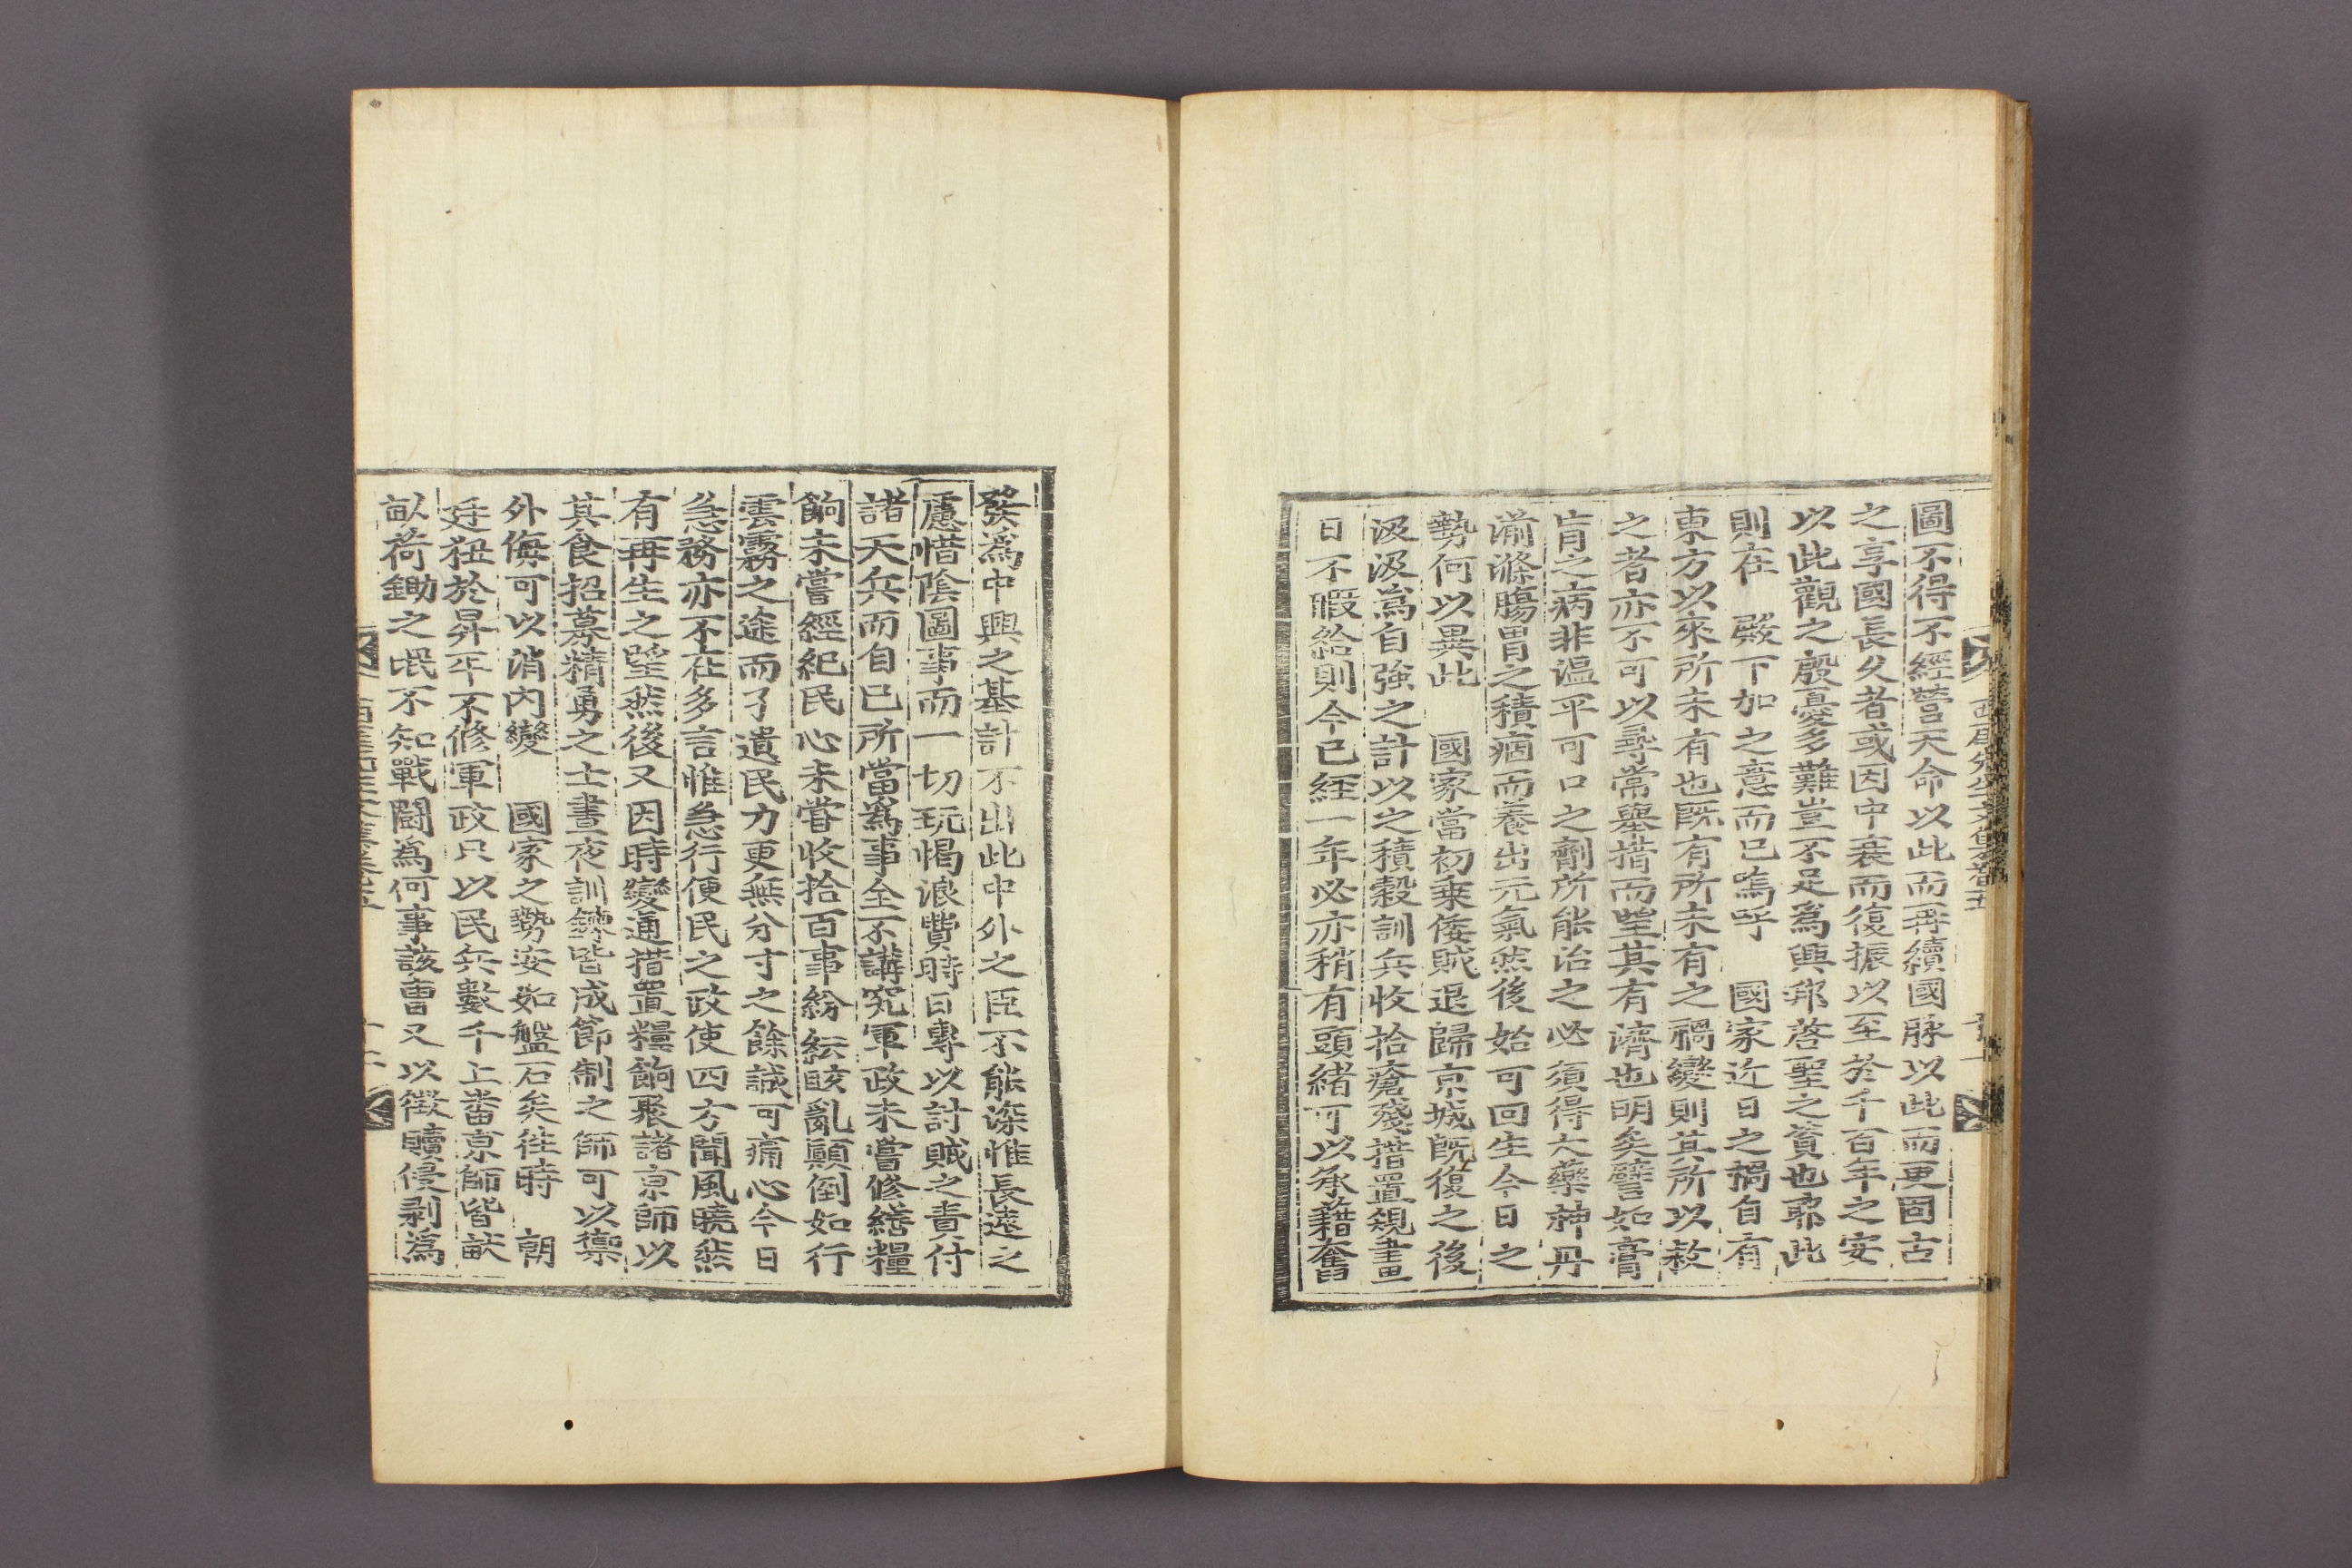 圖不得不經營天命以此而再續國脉以此而更固古
之享國長久者或因中衰而復振以至於千百年之安
以此觀之殷憂多難豈不足爲興邦啓聖之資也耶此
則在　殿下加之意而已嗚呼　國家近日之禍自有
東方以來所未有也旣有所未有之禍變則其所以救
之者亦不可以尋常擧措而望其有濟也明矣譬如膏
肓之病非溫平可口之劑所能治之必須得大藥神丹
湔滌膓胃之積痼而養出元氣然後始可回生今日之
勢何以異此　國家當初乗倭賊退歸京城旣復之後
汲汲爲自強之計以之積穀訓兵收拾瘡殘措置規畫
日不暇給則今已經一年必亦稍有頭緖可以承藉奮
發爲中興之基計不出此中外之臣不能深惟長遠之
慮惜陰圖事而一切玩愒浪費時日專以討賊之責付
諸天兵而自已所當爲事全不講究軍政未嘗修繕糧
餉未嘗經紀民心未甞收拾百事紛紜眩亂顚倒如行
雲霧之途而孑遺民力更無分寸之餘誠可痛心今日
急務亦不在多言惟急行便民之政使四方聞風曉然
有再生之望然後又因時變通措置糧餉聚諸京師以
其食招募精勇之士晝夜訓鍊皆成節制之師可以禦
外侮可以消內變　國家之勢安如盤石矣往時　朝
廷狃於昇平不修軍政只以民兵數千上番京師皆畎
畒荷鋤之氓不知戰鬪爲何事該曹又以徵贖侵剥爲